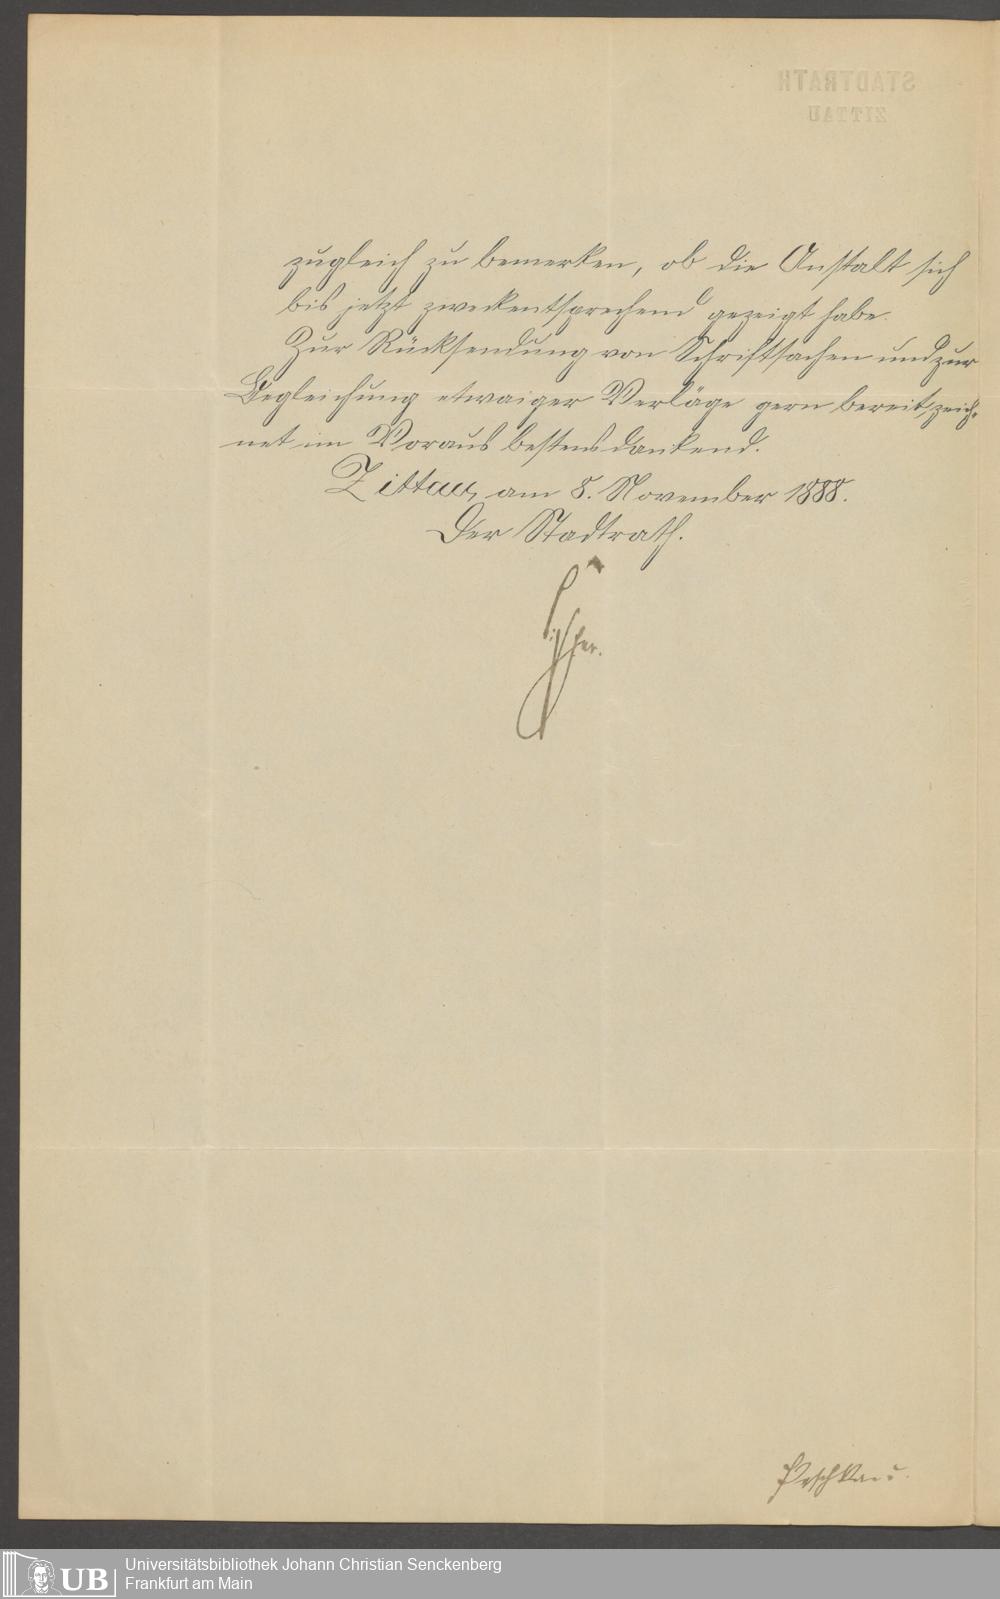 STADTRATH
ZITTAU
zugleich zu bemerken, ob die Anstalt sich
bis jetzt zweckentsprechend gezeigt habe.
Zur Rücksendung von Schriftsachen und zur
Begleichung etwaiger Verläge gern bereit, zeich-
net im Voraus bestens dankend.
Zittau, am 8. November 1888.
Der Stadtrath.
Universitätsbibliothek Johann Christian Senckenberg
UB Frankfurt am Main